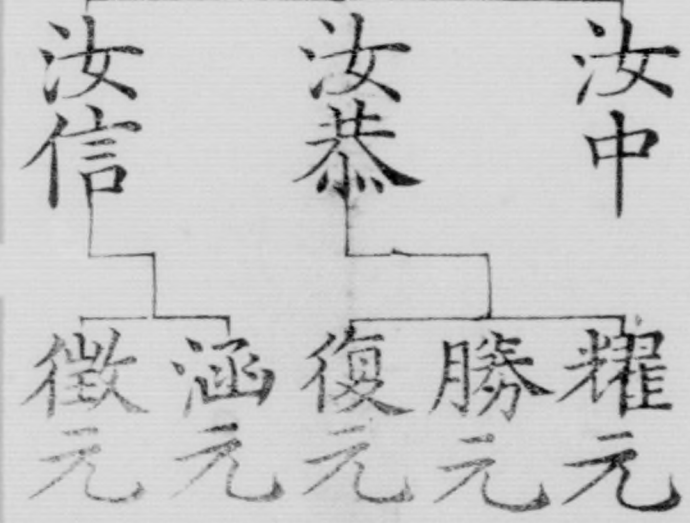 汝中
汝恭
汝信
耀元
勝元
復元
涵元
徵元